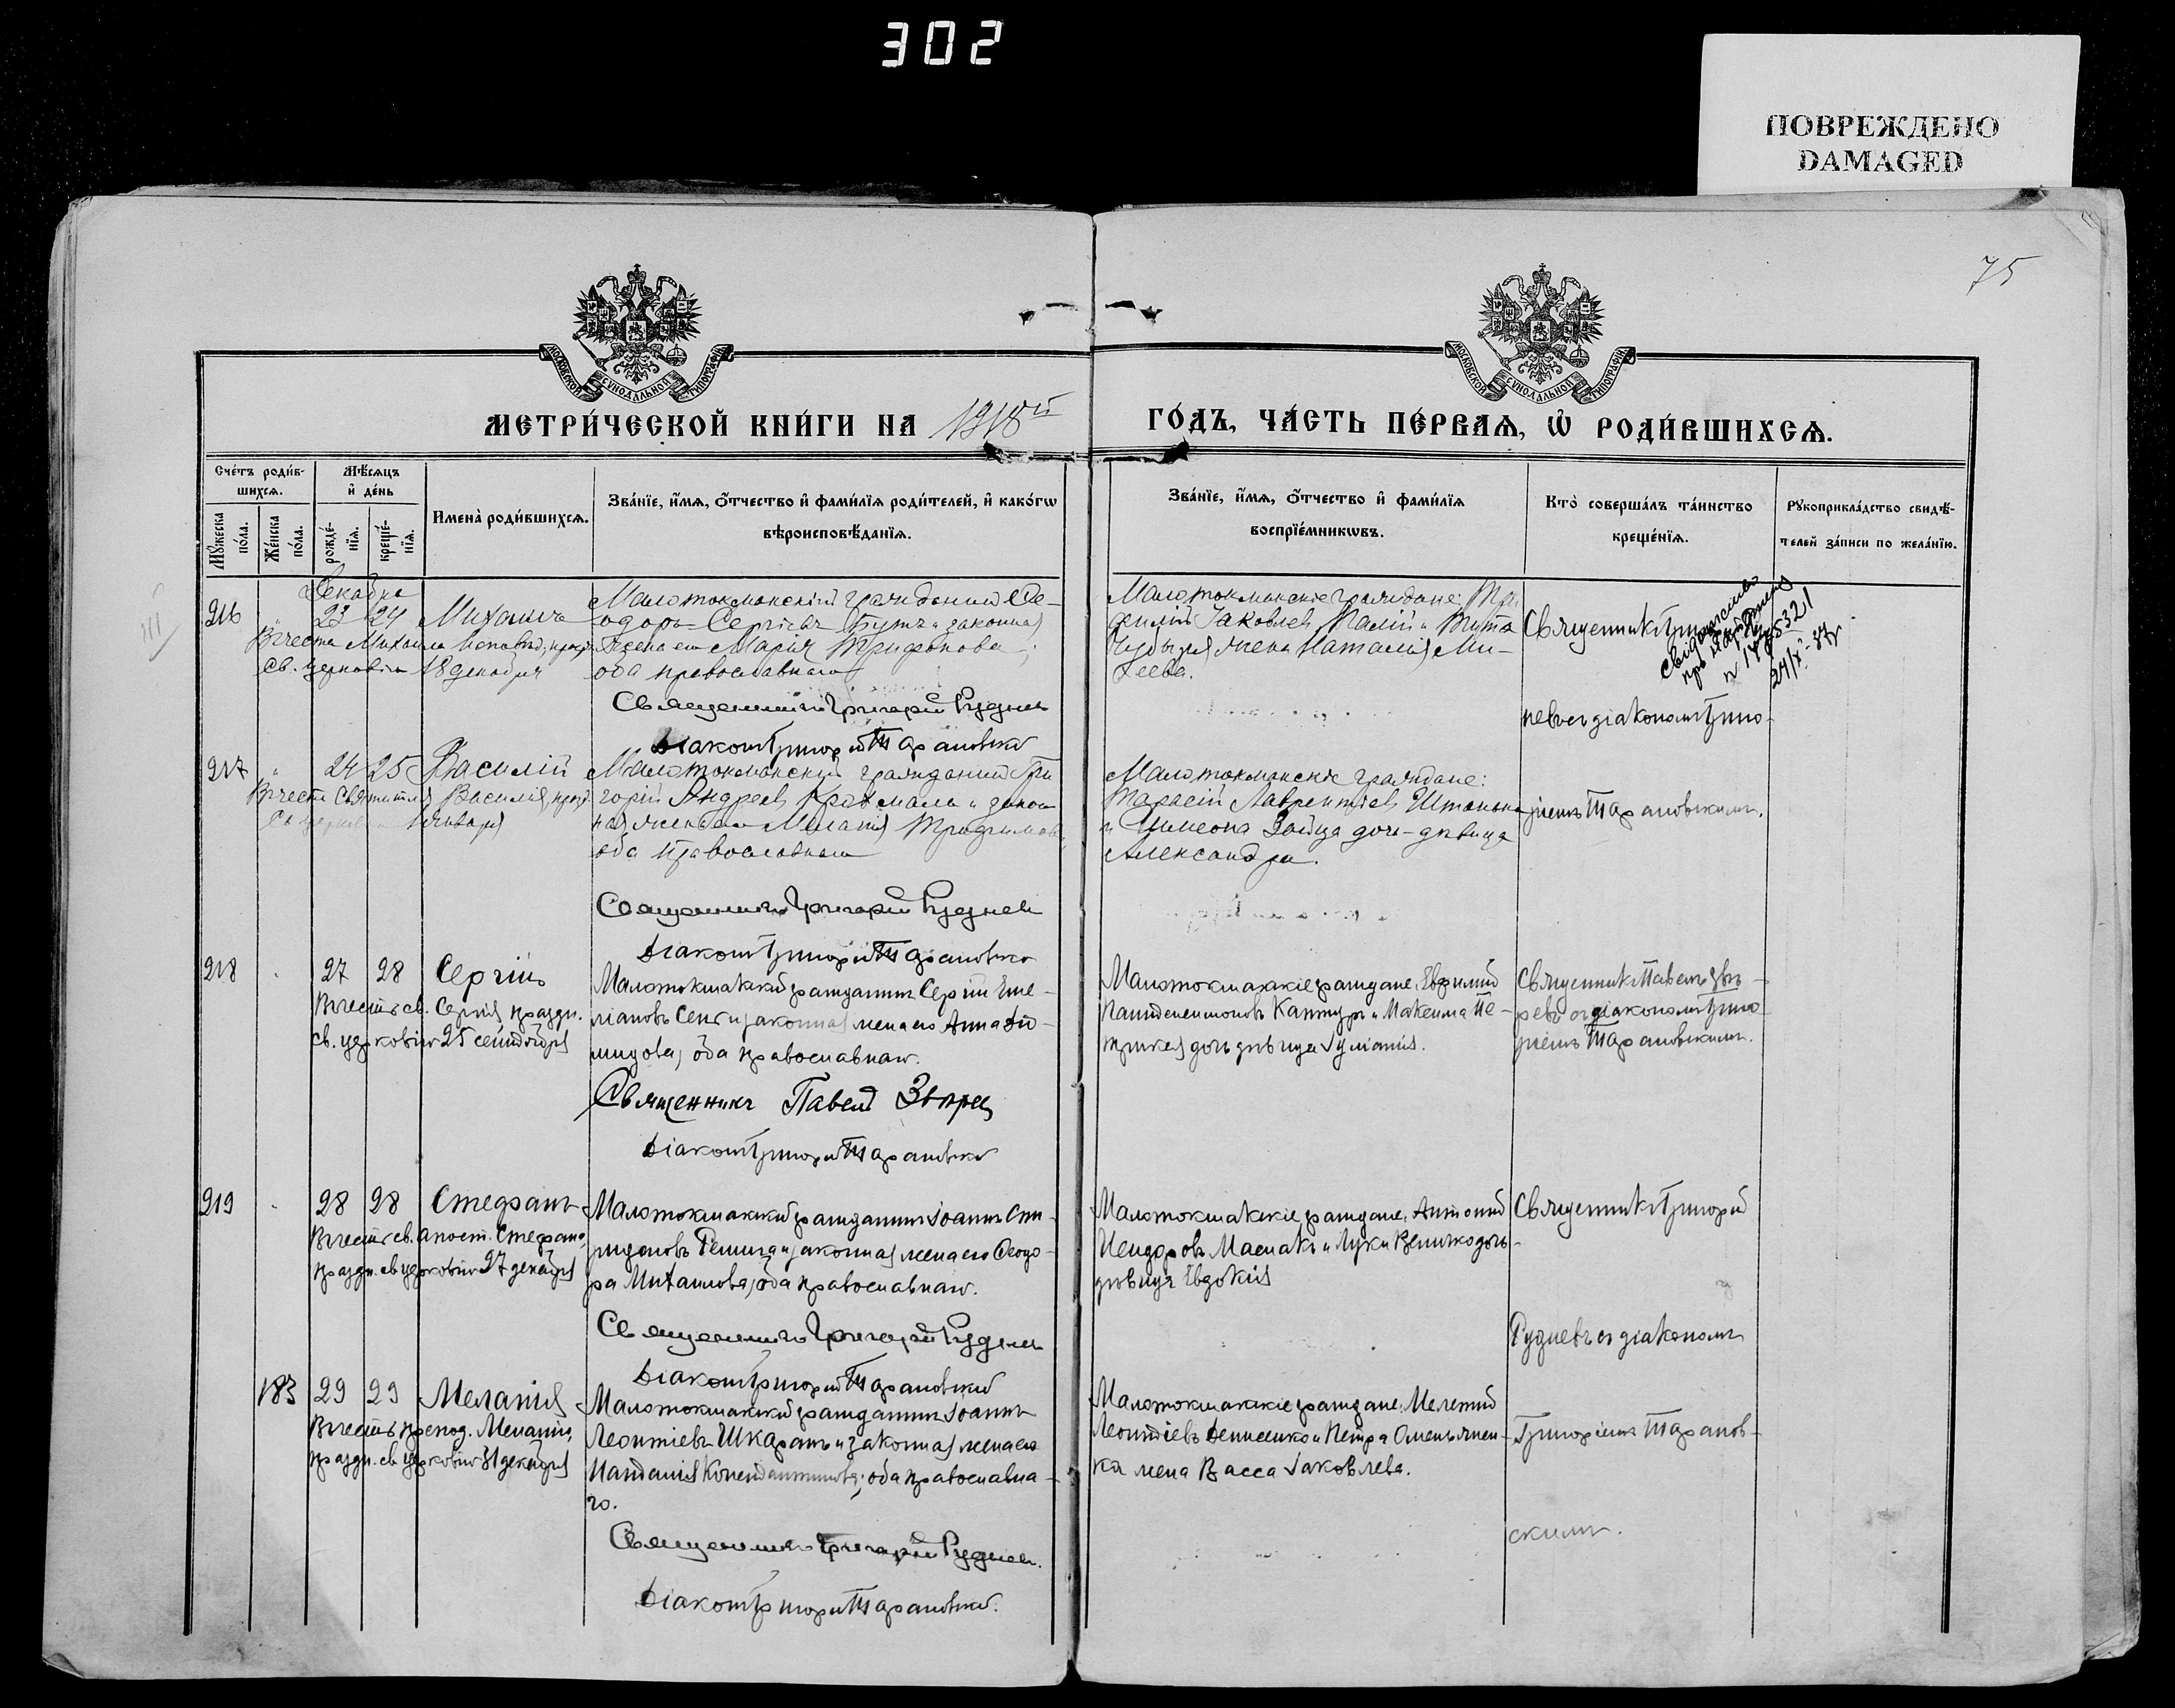 302
ПОВРЕЖДЕНО
DAMAGED
75
МОСКОВСКОЙ СѴНОДАЛЬНОЙ ТИПОГРАФІИ
МОСКОВСКОЙ СѴНОДАЛЬНОЙ ТИПОГРАФІИ
МЕТРИ́ЧЕСКОЙ КНИ́ГИ НА 1918й
ГО́ДЪ, ЧА́СТЬ ПЕ́РВАѦ, Ѽ РОДИ́ВШИХСѦ.
Счéтъ роди́в-
шихсѧ.
Мꙋ́жеска
по́ла.
Же́нска
по́ла.
Мѣ́сѧцъ
и҆ де́нь
рожде́-
нїѧ.
креще́-
нїѧ.
Имена̀ роди́вшихсѧ.
Зва́нїе, и҆́мѧ, ѻ҆́тчество и҆ фами́лїѧ роди́телей, и҆ како́гѡ
вѣроисповѣ́данїѧ.
Зва́нїе, и҆́мѧ, ѻ҆́тчество и҆ фами́лїѧ
воспрїе́мникѡвъ.
Кто̀ соверша́лъ та́инство
креще́нїѧ.
Рꙋкоприкла́дство свидѣ́-
телей за́писи по жела́нїю.
Декабря
216 23 24 Михаилъ
Въ честь Михаила Исповѣд, празд.
св. церковію 18 декабря
Малотокмакскій гражданинъ Ѳе-
одоръ Сергіевъ и законная
жена его Марія Трифонова,
оба православнаго
Священникъ Григорій Рудневъ
Діаконъ Григорій Тарановскій
Малотокмакскіе граждане: Три
филій Іаковлевъ Палій и Тита
жена Наталія Ми-
хеева.
Священникъ Григорій
невъ съ діакономъ Григо-
24/X-37г
217 24 25 Василій
Въ честь Святителя Василія, празд.
св. церковію 1 января
Малотокмакскій гражданинъ Гри
горій Андреевъ Крохмаль и закон
ная жена его Меланія
оба православнаго
Священникъ Григорій Рудневъ
Діаконъ Григорій Тарановскій
Малотокмакскіе граждане:
Тарасій Лаврентіевъ
и Симеона Зайца дочь-дѣвица
Александра.
ріемъ Тарановскимъ.
218 27 28 Сергій
Въ честь св. Сергія, праздн.
св. церковію 25 сентября
Малотокмакскій гражданинъ Сергій Еме-
ліановъ и законная жена его Анна Діо-
мидова, оба православнаго.
Священникъ Павелъ Звѣрев
Діаконъ Григорій Тарановскій
Малотокмакскіе граждане: Евфимій
Пантелеимоновъ и Максима Пе-
дочь дѣвица Іуліанія.
Священникъ Павелъ Звѣ-
ревъ съ діакономъ Григо-
ріемъ Тарановскимъ.
219 28 28 Стефанъ
Въ честь св. апост. Стефана,
праздн. св церковію 27 декабря
Малотокмакскій гражданинъ Іоаннъ Спи-
ридоновъ и законная жена его Ѳеодо-
ра Михаилова, оба православнаго.
Священникъ Григорій Рудневъ
Діаконъ Григорій Тарановскій
Малотокмакскіе граждане: Антоній
Исидоровъ Маслакъ и Луки дочь-
дѣвица Евдокія
Священникъ Григорій
Рудневъ съ діакономъ
183 29 29 Меланія
Въ честь препод. Меланіи,
праздн. св церковію 31 декабря
Малотокмакскій гражданинъ Іоаннъ
Леонтіевъ Шкаранъ и законная жена его
Константинова; оба православна-
го.
Священникъ Григорій Рудневъ.
Діаконъ Григорій Тарановскій.
Малотокмакскіе граждане: Мелетій
Леонтіевъ Денисенко и Петра Омельянен-
ка жена Васса Іаковлева.
Григоріемъ Таранов-
скимъ.